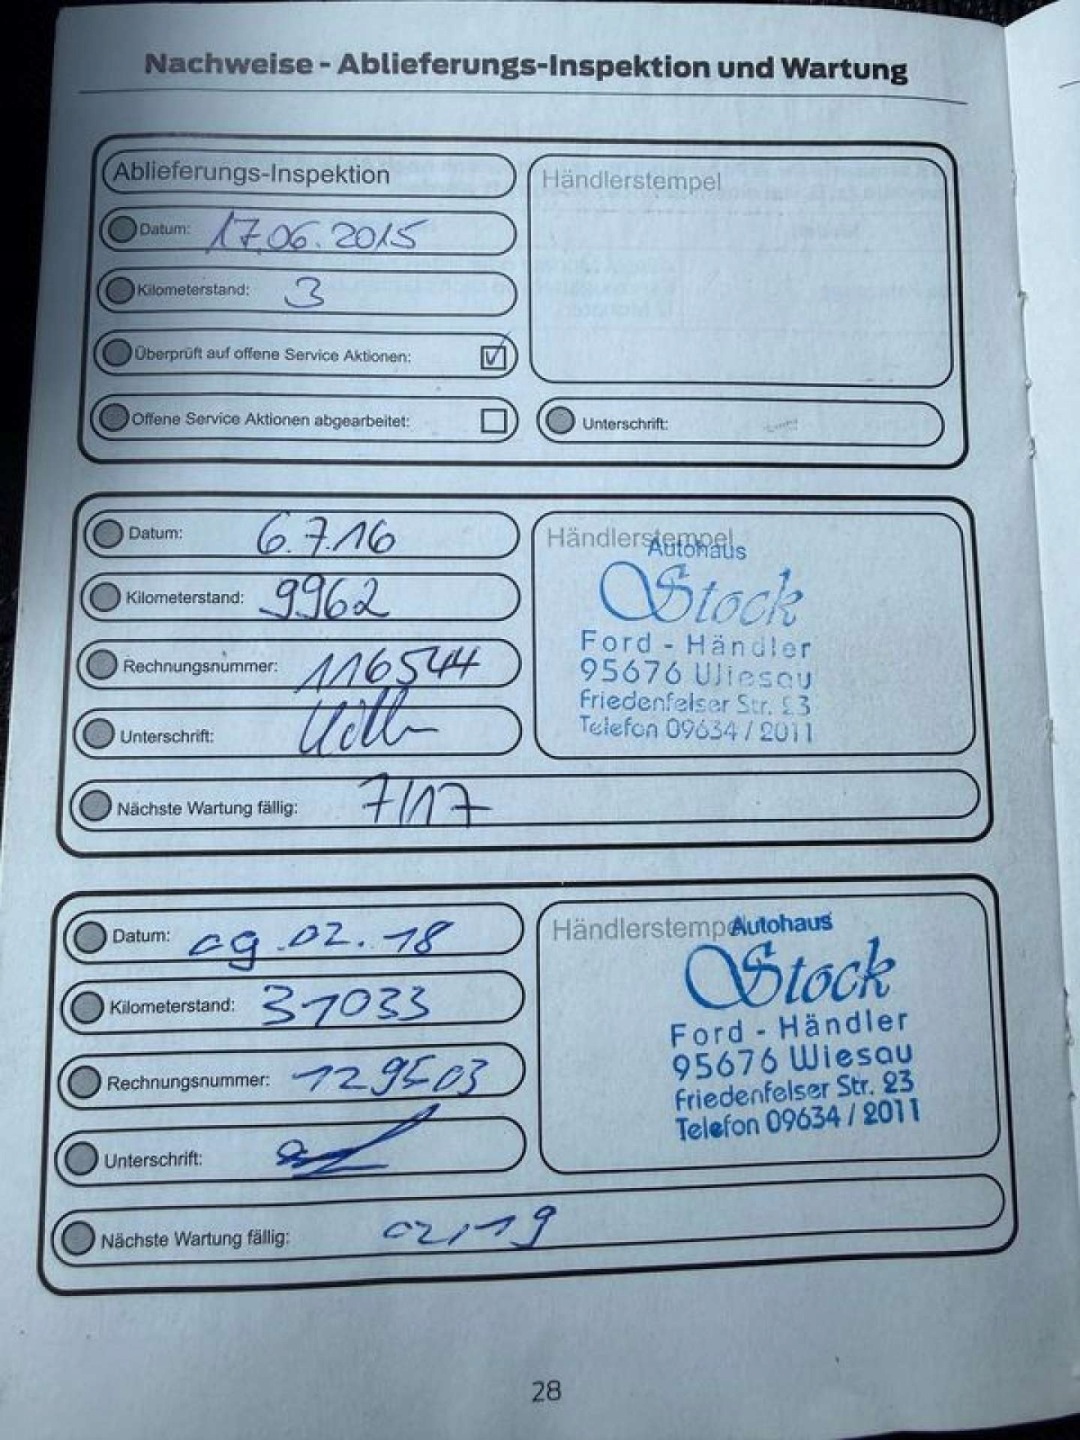 Nachweise - Ablieferungs-Inspektion und Wartung
Ablieferungs-Inspektion
Händlerstempel
Datum: 17.06.2015
Kilometerstand: 3
Überprüft auf offene Service Aktionen:
Offene Service Aktionen abgearbeitet:
Unterschrift:
Datum: 6.7.16
Kilometerstand: 9962
Rechnungsnummer: 116544
Unterschrift:
Nächste Wartung fällig: 7/17
Händlerstempel
Autohaus
Stock
Ford - Händler
95676 Wiesau
Friedenfelser Str. 23
Telefon 09634 / 2011
Datum: 09.02.18
Kilometerstand: 31033
Rechnungsnummer: 129503
Unterschrift:
Nächste Wartung fällig: 02/19
Händlerstempel
Autohaus
Stock
Ford - Händler
95676 Wiesau
Friedenfelser Str. 23
Telefon 09634 / 2011
28